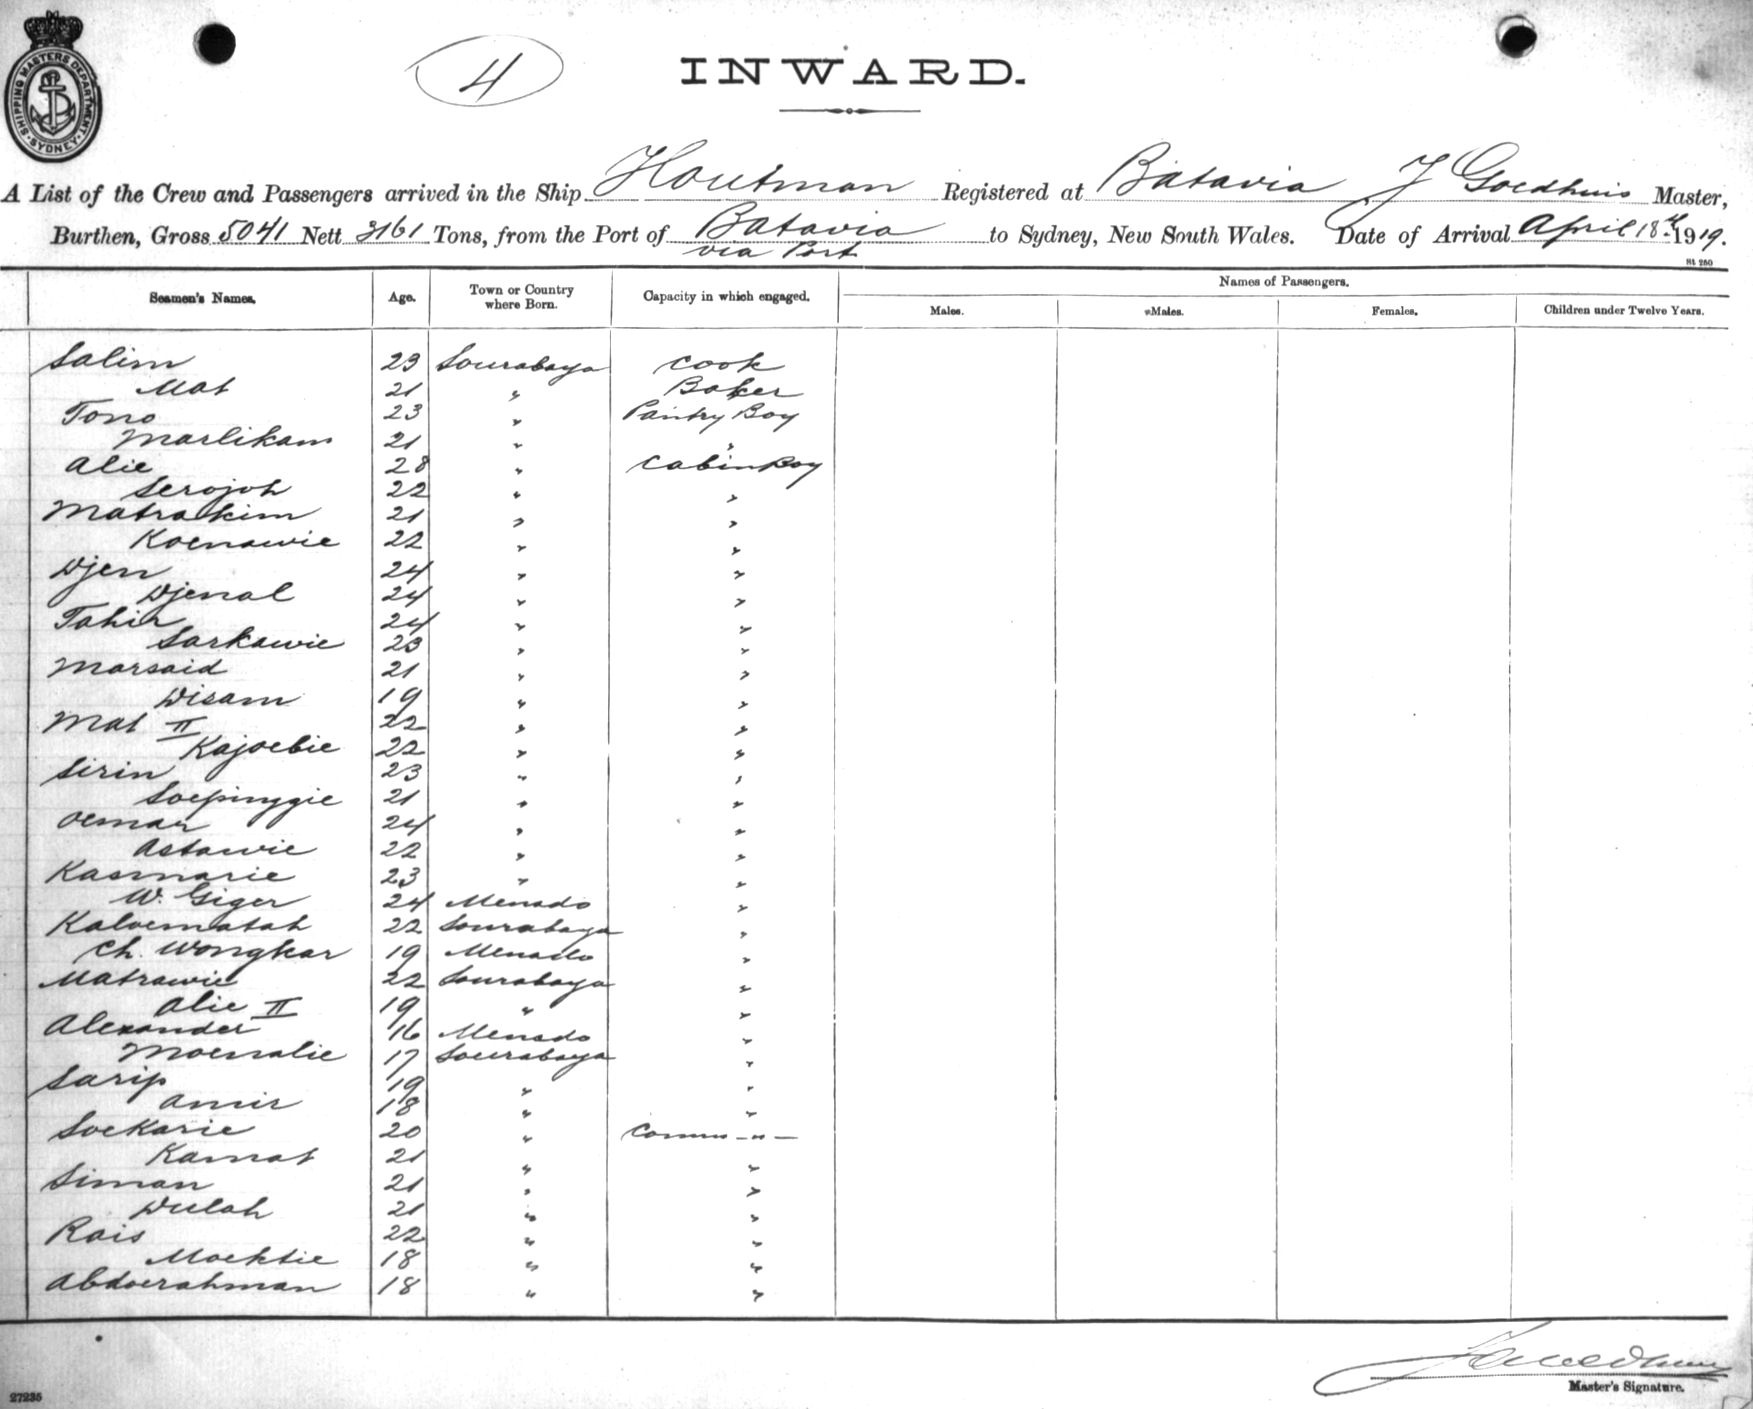 SHIPPING MASTERS DEPARTMENT · SYDNEY ·
4
INWARD.
A List of the Crew and Passengers arrived in the Ship Houtman Registered at Batavia J Goedhuis Master,
Burthen, Gross 5041 Nett 3161 Tons, from the Port of Batavia to Sydney, New South Wales. Date of Arrival April 18th 1919.
via Port
St 250
Seamen's Names. Age. Town or Country where Born. Capacity in which engaged. Names of Passengers.
Males. Males. Females. Children under Twelve Years.
Salim 23 Sourabaya Cook
Mat 21 " Baker
Tono 23 " Pantry Boy
Marlikam 21 " "
Alie 28 " Cabin Boy
Serojoh 22 " "
Matrakim 21 " "
Koenawie 22 " "
Djen 24 " "
Djenal 24 " "
Tahir 24 " "
Sarkawie 23 " "
Marsaid 21 " "
Disam 19 " "
Mat II 22 " "
Kajoebie 22 " "
Sirin 23 " "
Soepinggie 21 " "
Oemar 24 " "
Astawie 22 " "
Kasmarie 23 " "
W. Giger 24 Menado "
Kaloematah 22 Sourabaya "
Ch. Wongkar 19 Menado "
Matrawie 22 Sourabaya "
Alie II 19 " "
Alexander 16 Menado "
Moenalie 17 Sourabaya "
Sarip 19 " "
Amir 18 " "
Soekarie 20 " Comm – " –
Kamat 21 " "
Siman 21 " "
Dulah 21 " "
Rais 22 " "
Moektie 18 " "
Abdoerahman 18 " "
Master's Signature.
27235